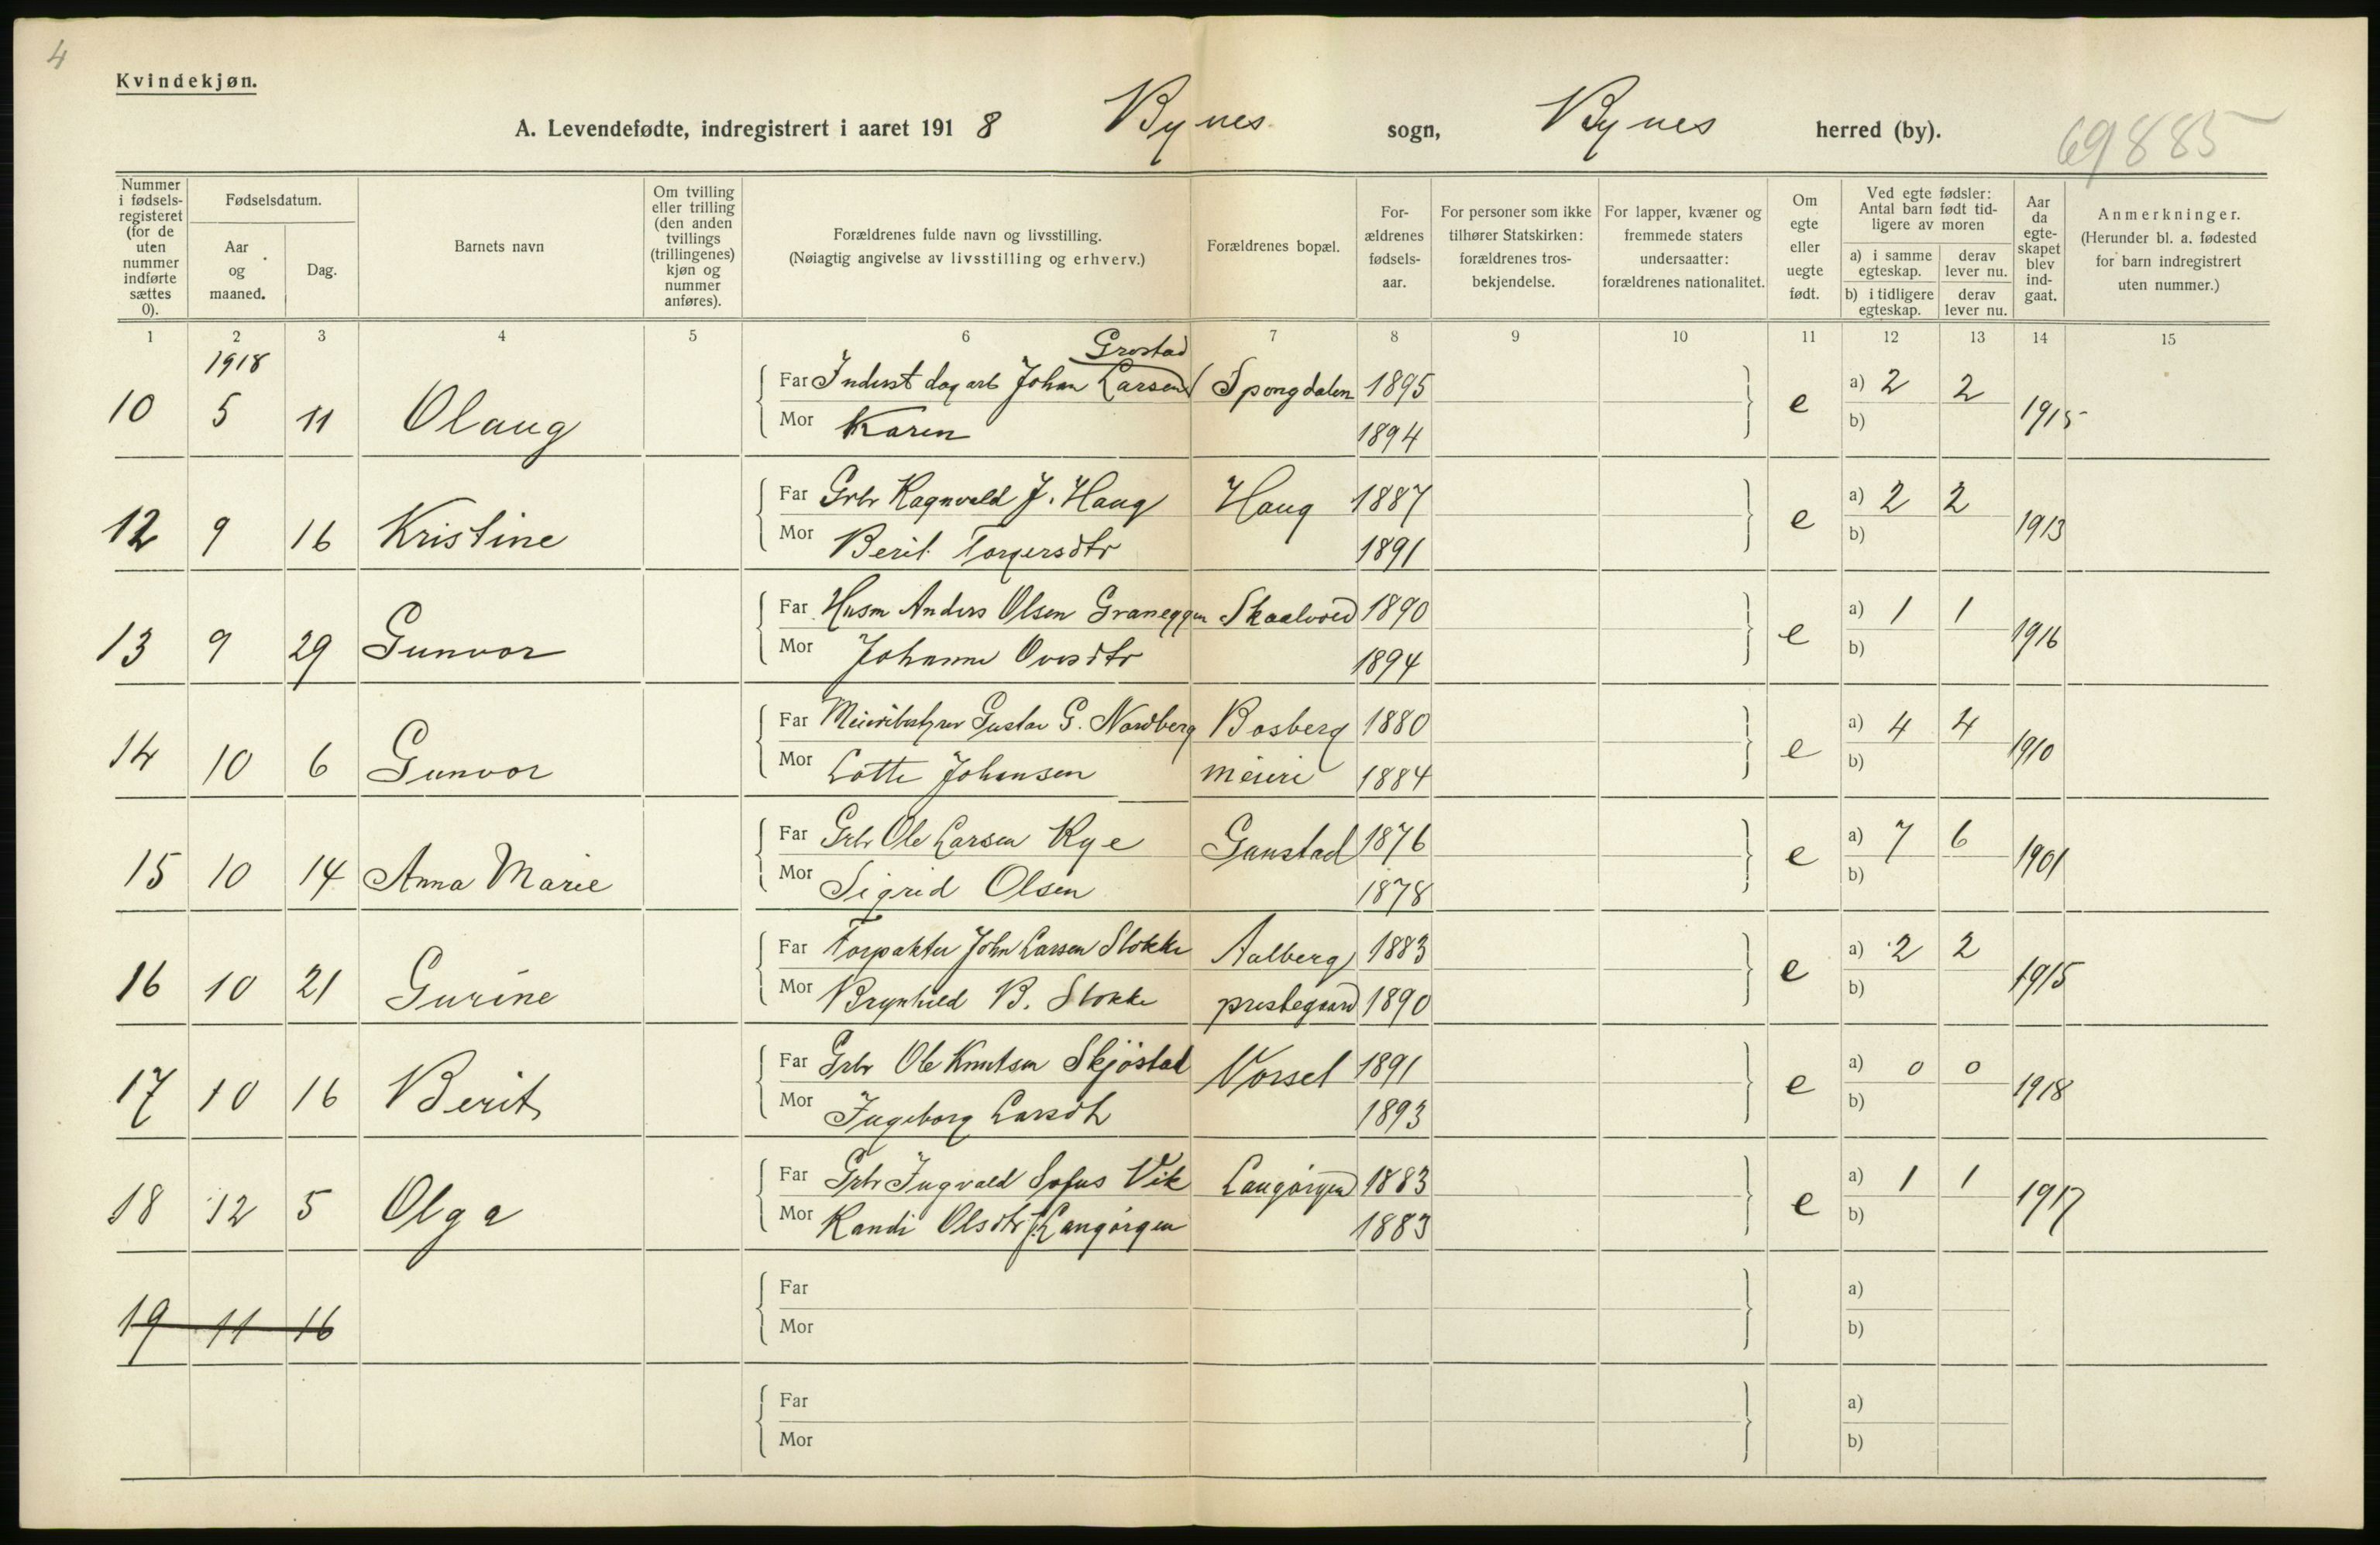 4
Kvindekjøn.
A. Levendefødte, indregistrert i aaret 1918 Bynes sogn, Bynes herred (by).
69885
Nummer i fødsels-registeret (for de uten nummer indførte sættes 0).
Fødselsdatum.
Aar og maaned.
Dag.
Barnets navn
Om tvilling eller trilling (den anden tvillings (trillingenes) kjøn og nummer anføres).
Forældrenes fulde navn og livsstilling.
(Nøiagtig angivelse av livsstilling og erhverv.)
Forældrenes bopæl.
For-ældrenes fødsels-aar.
For personer som ikke tilhører Statskirken: forældrenes tros-bekjendelse.
For lapper, kvæner og fremmede staters undersaatter: forældrenes nationalitet.
Om egte eller uegte født.
Ved egte fødsler: Antal barn født tid-ligere av moren
a) i samme egteskap. derav lever nu.
b) i tidligere egteskap. derav lever nu.
Aar da egte-skapet blev ind-gaat.
Anmerkninger.
(Herunder bl. a. fødested for barn indregistrert uten nummer.)
1 2 3 4 5 6 7 8 9 10 11 12 13 14 15
1918
Grostad
10 5 11 Olaug Far Indust dagarb Johan Larsen Spongdalen 1895 e a) 2 2 1915
Mor Karen 1894 b)
12 9 16 Kristine Far Grbr Ragnvald J. Haug Haug 1887 e a) 2 2 1913
Mor Berit Torgersdtr 1891 b)
13 9 29 Gunvor Far Husm Anders Olsen Graneggen Skaalvold 1890 e a) 1 1 1916
Mor Johanne Ovesdtr 1894 b)
14 10 6 Gunvor Far Meieribestyrer Gustav G. Nordberg Bosberg 1880 e a) 4 4 1910
Mor Lotte Johansen meieri 1884 b)
15 10 14 Anna Marie Far Grbr Ole Larsen Rye Gaustad 1876 e a) 7 6 1901
Mor Sigrid Olsen 1878 b)
16 10 21 Gurine Far Forpakter John Larsen Stokke Aalberg 1883 e a) 2 2 1915
Mor Brynhild B. Stokke prestegaard 1890 b)
17 10 16 Berit Far Grbr Ole Knutsen Skjøstad Vorset 1891 e a) 0 0 1918
Mor Ingeborg Larsdtr 1893 b)
18 12 5 Olga Far Grbr Ingvald Sofus Vik Langørgen 1883 e a) 1 1 1917
Mor Randi Olsdtr f. Langørgen 1883 b)
19 11 16 Far a)
Mor b)
Far a)
Mor b)